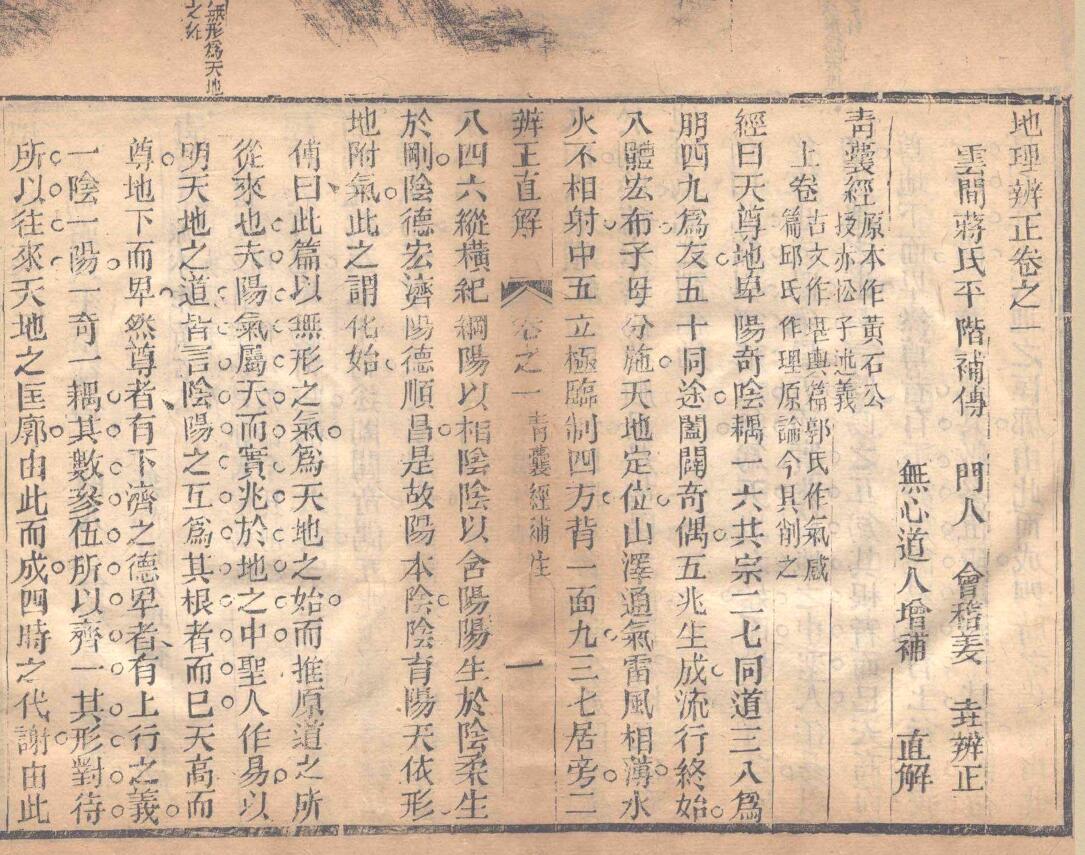 地理辨正卷之一
雲間蔣氏平階補傳 門人 會稽姜 垚辨正
無心道人增補 直解
青囊經原本作黃石公
授赤松子述義
上卷古文作堪輿篇郭氏作氣感
篇邱氏作理原論今具削之
經曰天尊地卑陽奇陰耦一六共宗二七同道三八為
朋四九為友五十同途闔闢奇偶五兆生成流行終始
八體宏布子母分施天地定位山澤通氣雷風相薄水
火不相射中五立極臨制四方背一面九三七居旁二
辨正直解 卷之一 青囊經補注 一
八四六縱橫紀綱陽以相陰陰以含陽陽生於陰柔生
於剛陰德宏濟陽德順昌是故陽本陰陰育陽天依形
地附氣此之謂化始
傳曰此篇以無形之氣為天地之始而推原道之所
從來也夫陽氣屬天而實兆於地之中聖人作易以
明天地之道皆言陰陽之互為其根者而已天高而
尊地下而卑然尊者有下濟之德卑者有上行之義
一陰一陽一奇一耦其數參伍所以齊一其形對待
所以往來天地之匡廓由此而成四時之代謝由此
無形為天地